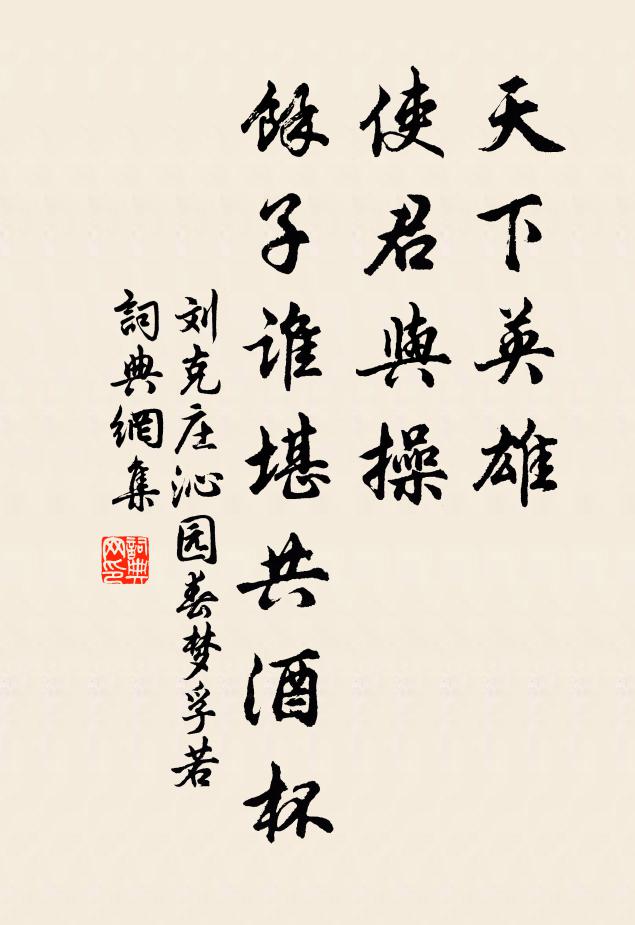 天下英雄
使君與操
餘子誰堪共酒杯
刘克庄沁园春梦孚若
詞典網集
詞典网印